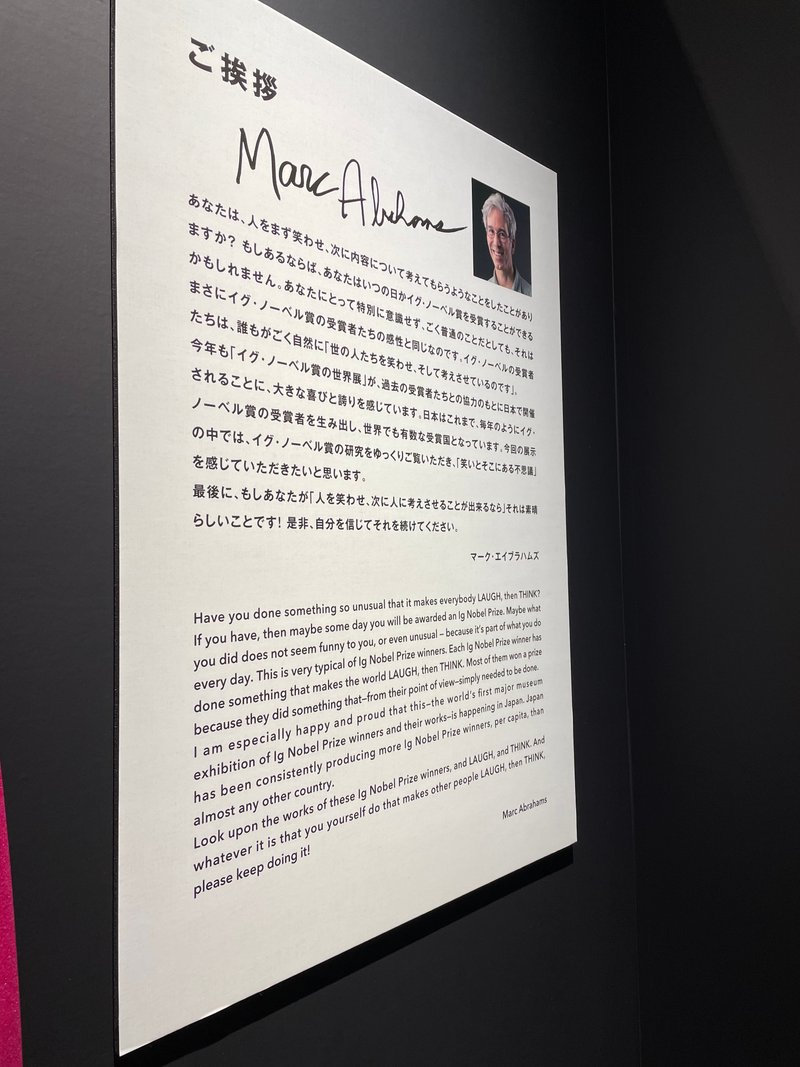 ご挨拶
Marc Abrahams
あなたは、人をまず笑わせ、次に内容について考えてもらうようなことをしたことがあり
ますか? もしあるならば、あなたはいつの日かイグ・ノーベル賞を受賞することができる
かもしれません。あなたにとって特別に意識せず、ごく普通のことだとしても、それは
まさにイグ・ノーベル賞の受賞者たちの感性と同じなのです。イグ・ノーベルの受賞者
たちは、誰もがごく自然に「世の人たちを笑わせ、そして考えさせているのです」。
今年も「イグ・ノーベル賞の世界展」が、過去の受賞者たちとの協力のもとに日本で開催
されることに、大きな喜びと誇りを感じています。日本はこれまで、毎年のようにイグ・
ノーベル賞の受賞者を生み出し、世界でも有数な受賞国となっています。今回の展示
の中では、イグ・ノーベル賞の研究をゆっくりご覧いただき、「笑いとそこにある不思議」
を感じていただきたいと思います。
最後に、もしあなたが「人を笑わせ、次に人に考えさせることが出来るなら」それは素晴
らしいことです! 是非、自分を信じてそれを続けてください。
マーク・エイブラハムズ
Have you done something so unusual that it makes everybody LAUGH, then THINK?
If you have, then maybe some day you will be awarded an Ig Nobel Prize. Maybe what
you did does not seem funny to you, or even unusual – because it's part of what you do
every day. This is very typical of Ig Nobel Prize winners. Each Ig Nobel Prize winner has
done something that makes the world LAUGH, then THINK. Most of them won a prize
because they did something that–from their point of view–simply needed to be done.
I am especially happy and proud that this–the world's first major museum
exhibition of Ig Nobel Prize winners and their works–is happening in Japan. Japan
has been consistently producing more Ig Nobel Prize winners, per capita, than
almost any other country.
Look upon the works of these Ig Nobel Prize winners, and LAUGH, and THINK. And
whatever it is that you yourself do that makes other people LAUGH, then THINK,
please keep doing it!
Marc Abrahams